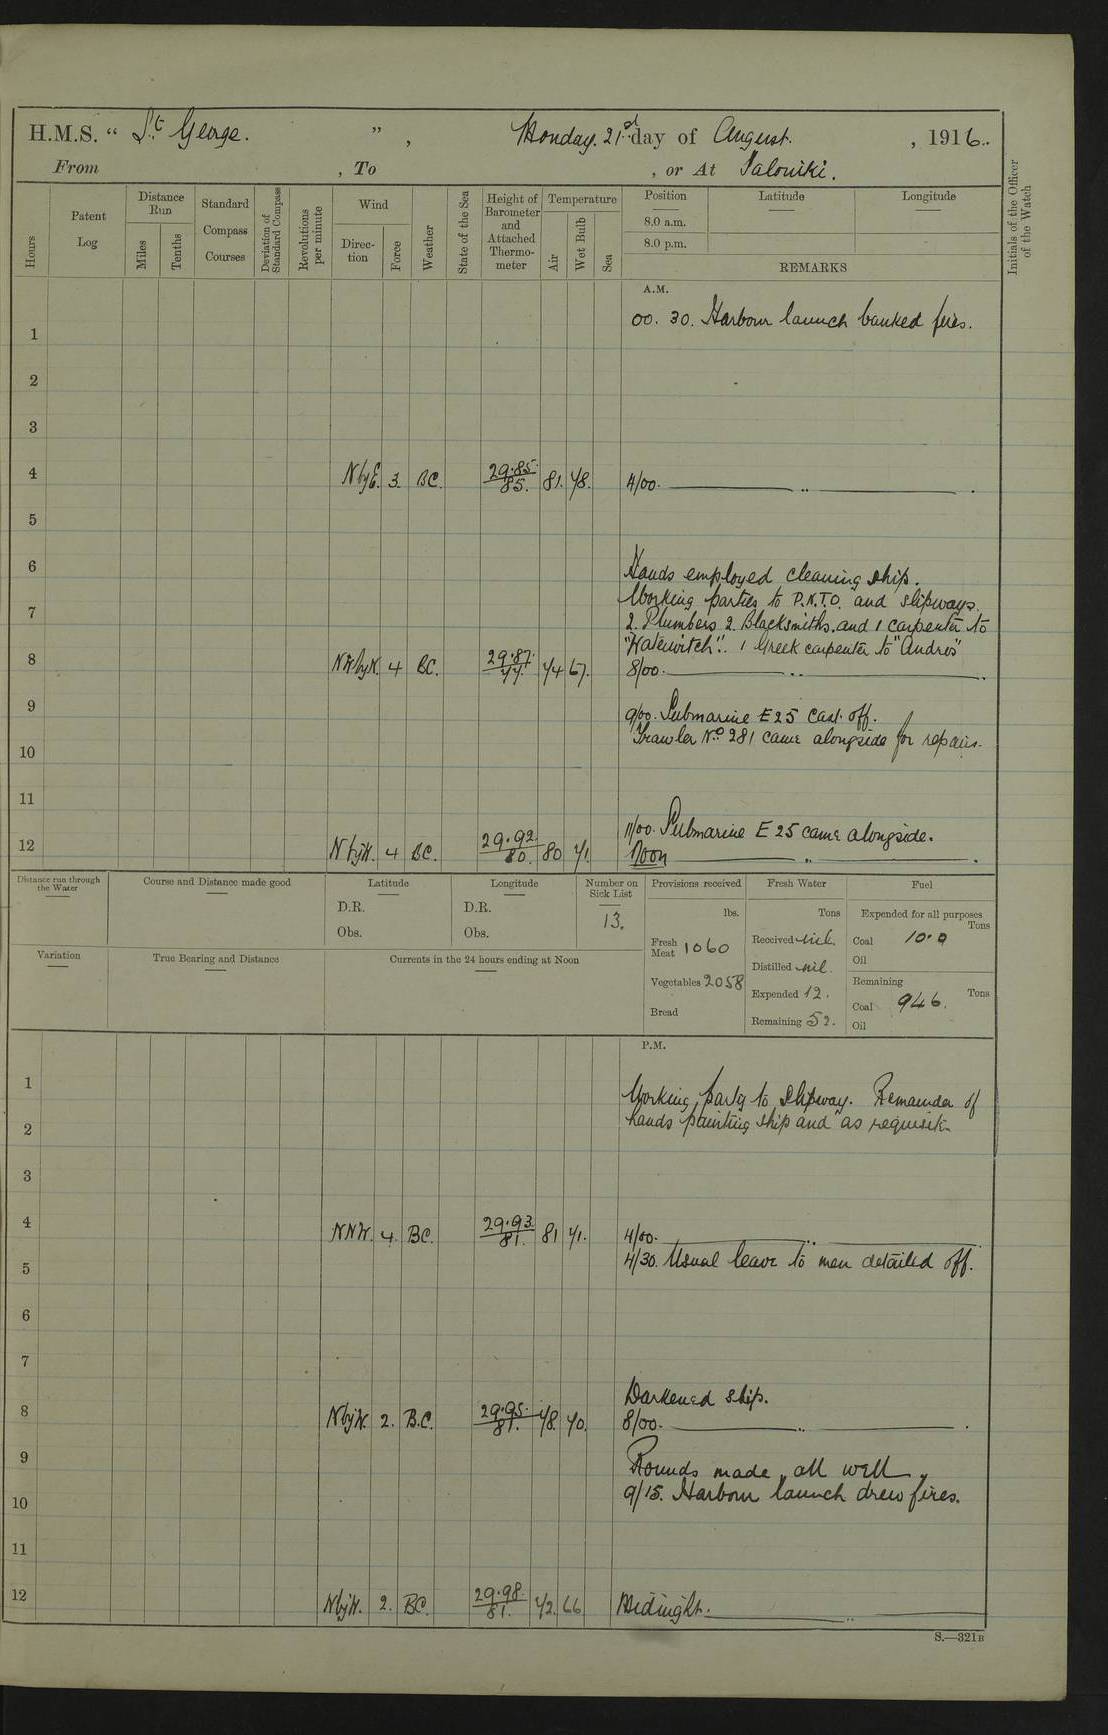 H.M.S. “ St. George. ” , Monday. 21st day of August. , 1916..
From , To , or At Saloniki.
Hours
Patent Log
Distance Run
Miles
Tenths
Standard Compass Courses
Deviation of Standard Compass
Revolutions per minute
Wind
Direction
Force
Weather
State of the Sea
Height of Barometer and Attached Thermometer
Temperature
Air
Wet Bulb
Sea
Position Latitude Longitude
8.0 a.m.
8.0 p.m.
REMARKS
Initials of the Officer of the Watch
A.M.
00. 30. Harbour launch banked fires.
1
2
3
4 N by E. 3. BC. 29.85. 85. 81. 78. 4/00. ——— .. ———.
5
6
Hands employed cleaning ship.
Working parties to P.N.T.O. and slipways.
7
2. Plumbers 2. Blacksmiths. and 1 carpenter to
"Waterwitch". 1 Greek carpenter to "Andros"
8 NW by N. 4 BC. 29.87. 77. 74 67. 8/00. ——— .. ———.
9
9/00. Submarine E25 Cast off.
Trawler No 281 came alongside for repairs.
10
11
11/00. Submarine E25 came alongside.
12 N by W. 4 BC. 29.92. 80. 80 71. Noon ——— „ ———.
Distance run through the Water
Course and Distance made good
Latitude
D.R.
Obs.
Longitude
D.R.
Obs.
Number on Sick List
13.
Provisions received
lbs.
Fresh Meat 1060
Vegetables 2058
Bread
Fresh Water
Tons
Received nil.
Distilled nil.
Expended 12.
Remaining 52.
Fuel
Expended for all purposes
Tons
Coal 10.0
Oil
Remaining
Tons
Coal 946.
Oil
Variation
True Bearing and Distance
Currents in the 24 hours ending at Noon
P.M.
1
Working party to Slipway. Remainder of
hands painting ship and as requisite.
2
3
4 NNW. 4. BC. 29.93. 81. 81 71. 4/00. ——— .. ———
4/30. Usual leave to men detailed off.
5
6
7
Darkened ship.
8 N by W. 2. B.C. 29.95. 81. 78. 70. 8/00. ——— .. ———.
9
Rounds made, all well.
9/15. Harbour launch drew fires.
10
11
12 N by W. 2. BC. 29.98. 81. 72. 66 Midnight. ——— .. ———
S.—321B